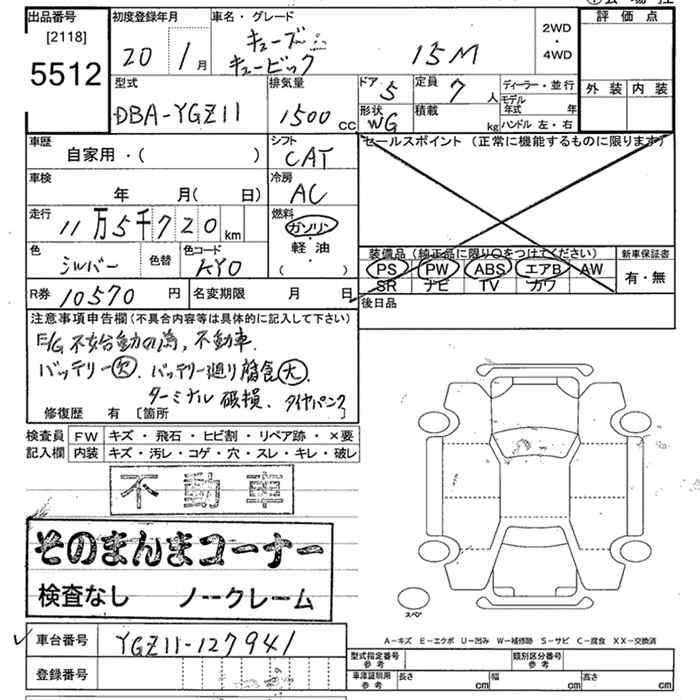 出品番号 [2118] 5512
初度登録年月 20年 1月
車名・グレード キューブ キュービック 15M
2WD・4WD
評価点
外装 内装
型式 DBA-YGZ11
排気量 1500 CC
ドア 5 定員 7人
形状 WG 積載 kg
ディーラー・並行
モデル年式 年
ハンドル 左・右
車歴 自家用・( )
シフト CAT
セールスポイント (正常に機能するものに限ります)
車検 年 月( 日)
冷房 AC
走行 11万5千720km
燃料 ガソリン・軽油・( )
色 シルバー 色替 色コード KYO
装備品(純正品に限り○をつけてください)
PS PW ABS エアB AW
SR ナビ TV カワ
新車保証書 有・無
R券 10570円 名変期限 月 日
後日品
注意事項申告欄(不具合内容等は具体的に記入して下さい)
E/G不始動の為,不動車.
バッテリー欠.バッテリー廻り腐食大.
ターミナル破損.タイヤパンク
修復歴 有 [箇所 ]
検査員記入欄
FW キズ・飛石・ヒビ割・リペア跡・×要
内装 キズ・汚レ・コゲ・穴・スレ・キレ・破レ
不動車
そのまんまコーナー
検査なし ノークレーム
スペア
A-キズ E-エクボ U-凹み W-補修跡 S-サビ C-腐食 XX-交換済
車台番号 YGZ11-127941
登録番号
型式指定番号 参考 類別区分番号 参考
車庫証明用 参考 長さ cm 幅 cm 高さ cm